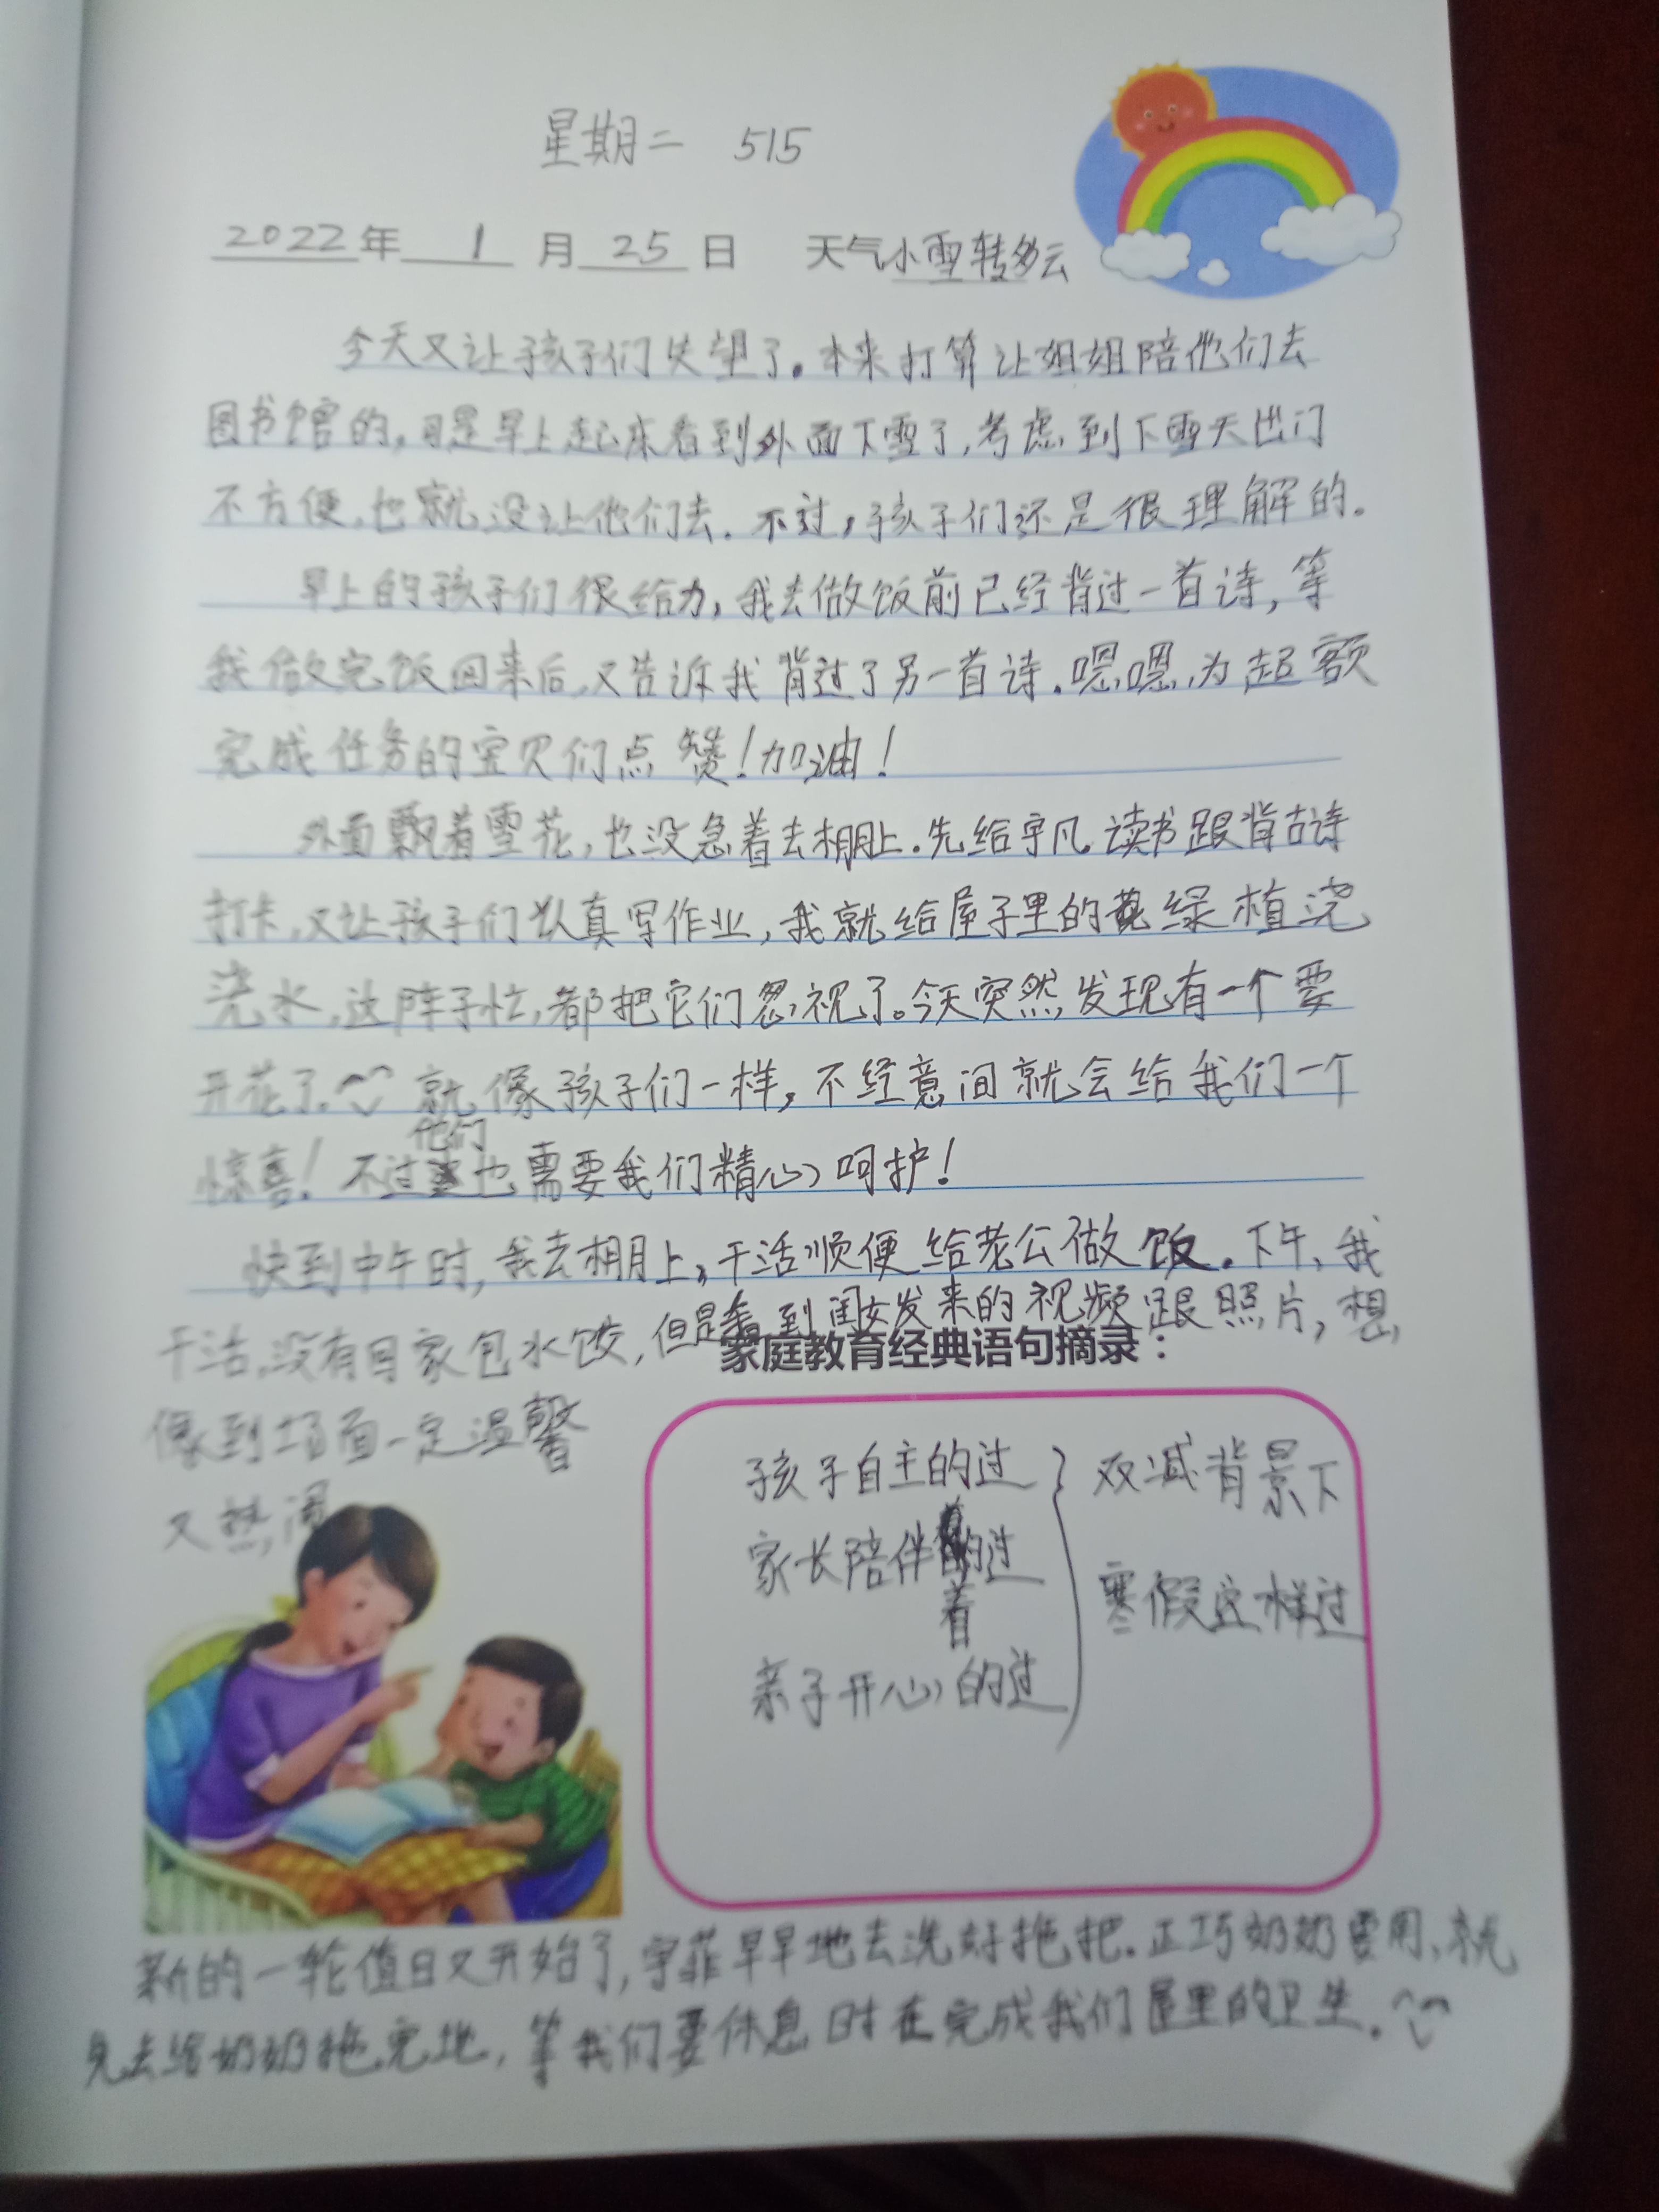 星期二 515
2022年 1 月 25 日 天气小雪转多云
今天又让孩子们失望了。本来打算让姐姐陪他们去
图书馆的，可是早上起床看到外面下雪了，考虑到下雪天出门
不方便，也就没让他们去。不过，孩子们还是很理解的。
早上的孩子们很给力，我去做饭前已经背过一首诗，等
我做完饭回来后，又告诉我背过了另一首诗。嗯嗯，为超额
完成任务的宝贝们点赞！加油！
外面飘着雪花，也没急着去棚上。先给宇凡读书跟背古诗
打卡，又让孩子们认真写作业，我就给屋子里的花绿植浇
浇水，这阵子忙，都把它们忽视了。今天突然发现有一个要
开花了。就像孩子们一样，不经意间就会给我们一个
惊喜！不过他们也需要我们精心呵护！
快到中午时，我去棚上，干活顺便给老公做饭。下午，我
干活，没有回家包水饺，但是看到闺女发来的视频跟照片，想
像到场面一定温馨
又热闹
家庭教育经典语句摘录：
孩子自主的过
家长陪伴着过
亲子开心的过
双减背景下
寒假这样过
新的一轮值日又开始了，宇菲早早地去洗好拖把。正巧奶奶要用，就
先去给奶奶拖完地，等我们要休息时在完成我们屋里的卫生。